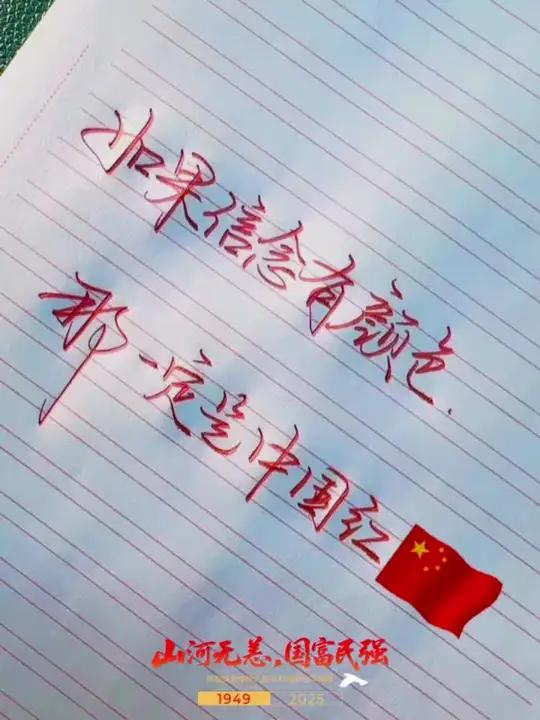 如果信念有颜色.
那一定是中国红
山河无恙,国富民强
1949
2025